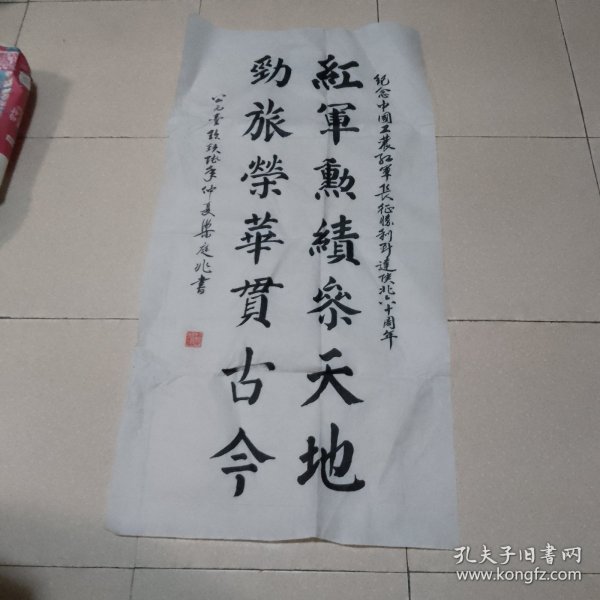 紀念中國工農紅軍長征勝利到達陝北六十周年
紅軍勳績參天地
勁旅榮華貫古今
仲夏梁庭兆書
孔夫子旧书网
www.kongfz.com